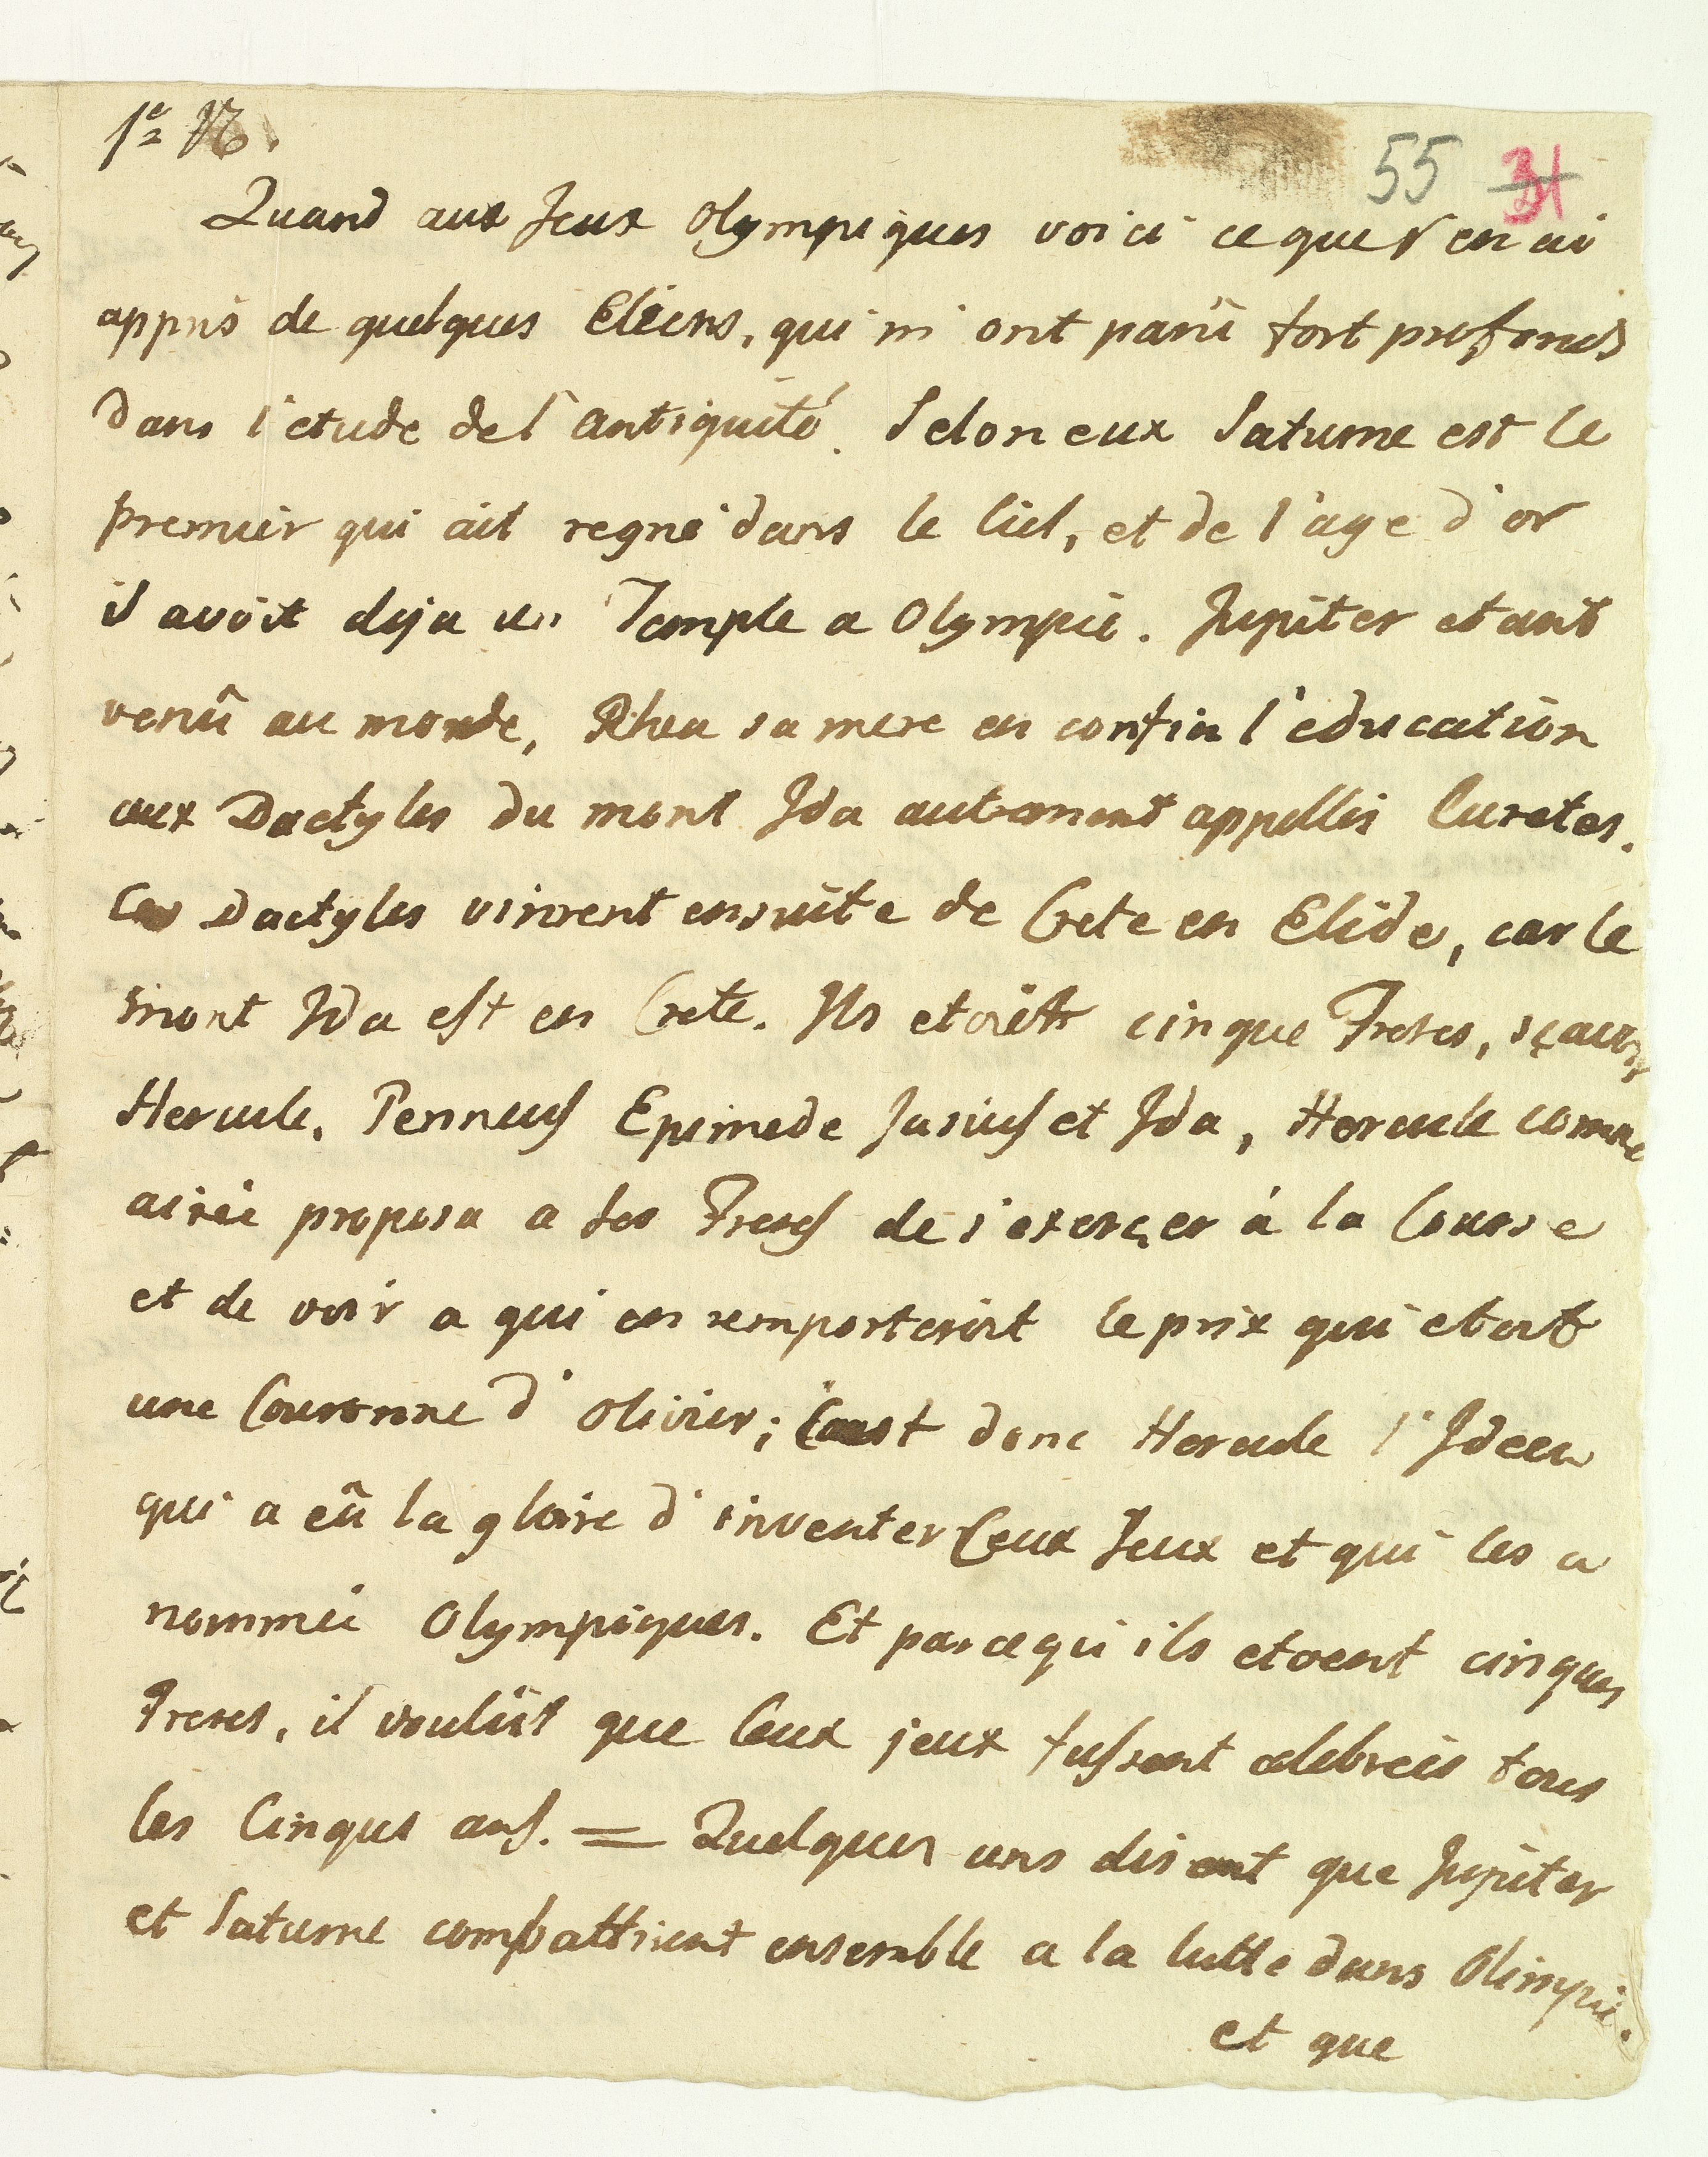 55 31
Quand aux Jeux Olympiques voici ce que j'en ai
appris de quelques Eléens, qui m'ont parû fort profonds
dans l'etude de l'antiquité. Selon eux Saturne est le
premier qui ait regné dans le Ciel, et de l'age d'or
il avoit deja un Temple a Olympie. Jupiter etant
venû au monde, Rhea sa mere en confia l'education
aux Dactyles du mont Ida autrement appellés Curetes.
Ces Dactyles vinrent ensuite de Crete en Elide, car le
mont Ida est en Crete. Ils etoit cinque Freres, sçavoir
Hercule, Penneus Epimede Jasius et Ida, Hercule comme
ainée proposa a ses Freres de s'exerçer à la Course
et de voir a qui en remporteroit le prix qui etoit
une Couronne d'Olivier; C'est donc Hercule l'Ideen
qui a eû la gloire d'inventer Ceux Jeux et qui les a
nommée Olympiques. Et parcequ'ils etoent cinques
Freres, il voulût que Ceux jeux fussent celebreés tous
les Cinque ans. = Quelques uns disent que Jupiter
et Saturne combattirent ensemble a la lutte dans Olimpie.
et que